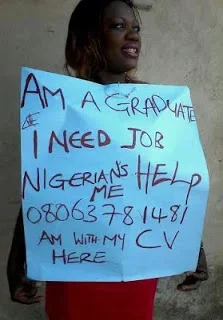 AM A GRADUATE
& I NEED JOB
NIGERIAN'S HELP
ME
08063781481
AM WITH MY CV
HERE